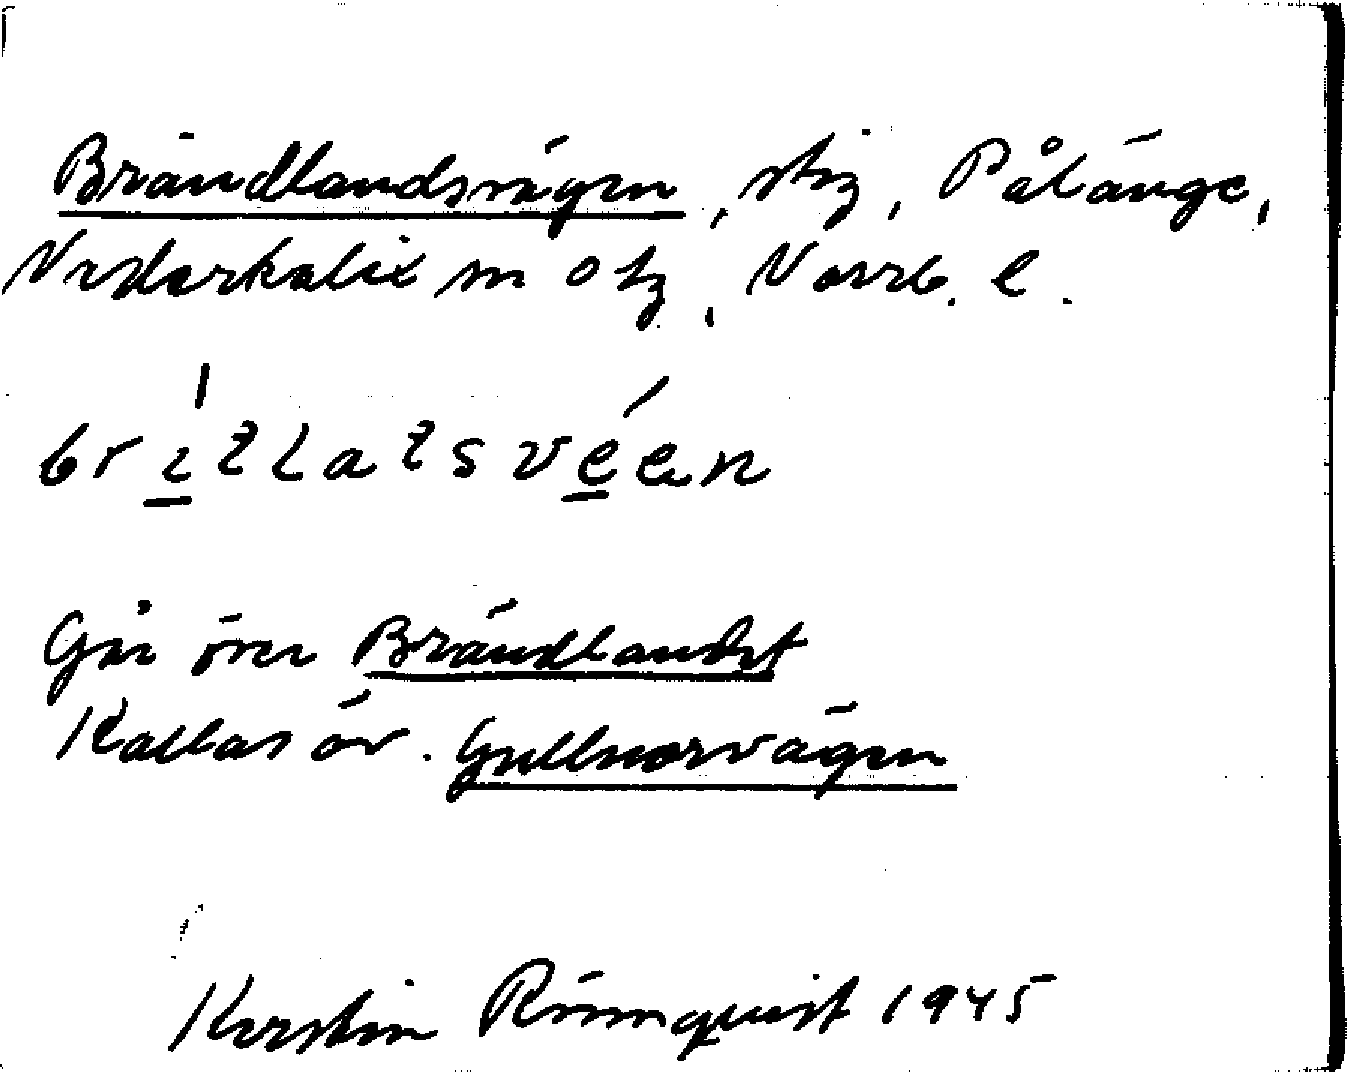 Brändlandsvägen, stig, Pålänge,
Nederkalix sn o tg, Norrb. l.
Går över Brändlandet
Kallas äv. Gullnorvägen
Kerstin Rönnquist 1945